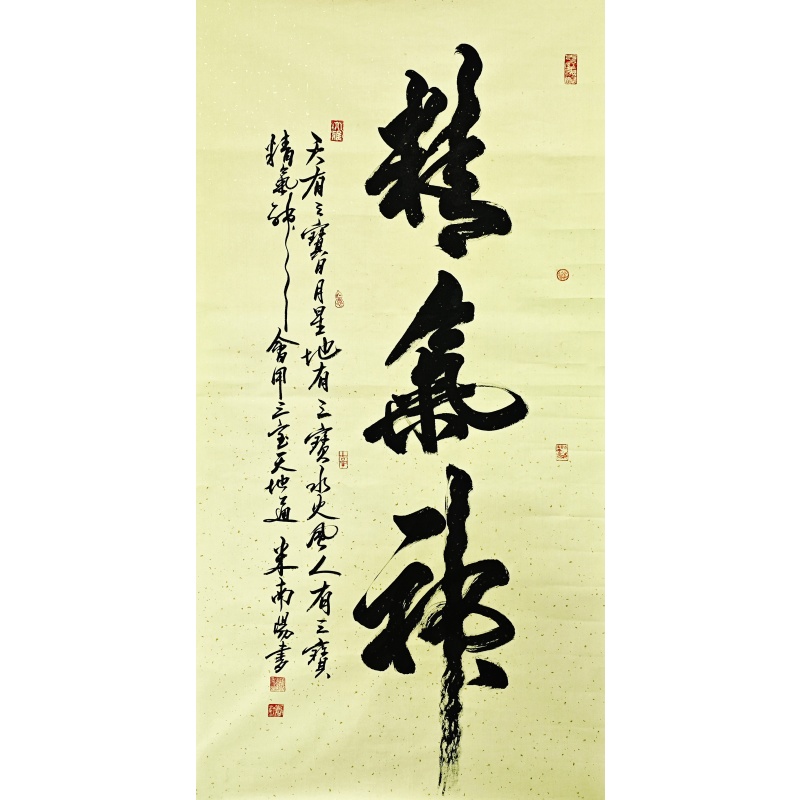 精氣神
天有三寶日月星地有三寶水火風人有三寶
精氣神會用三宝天地通 米南陽書